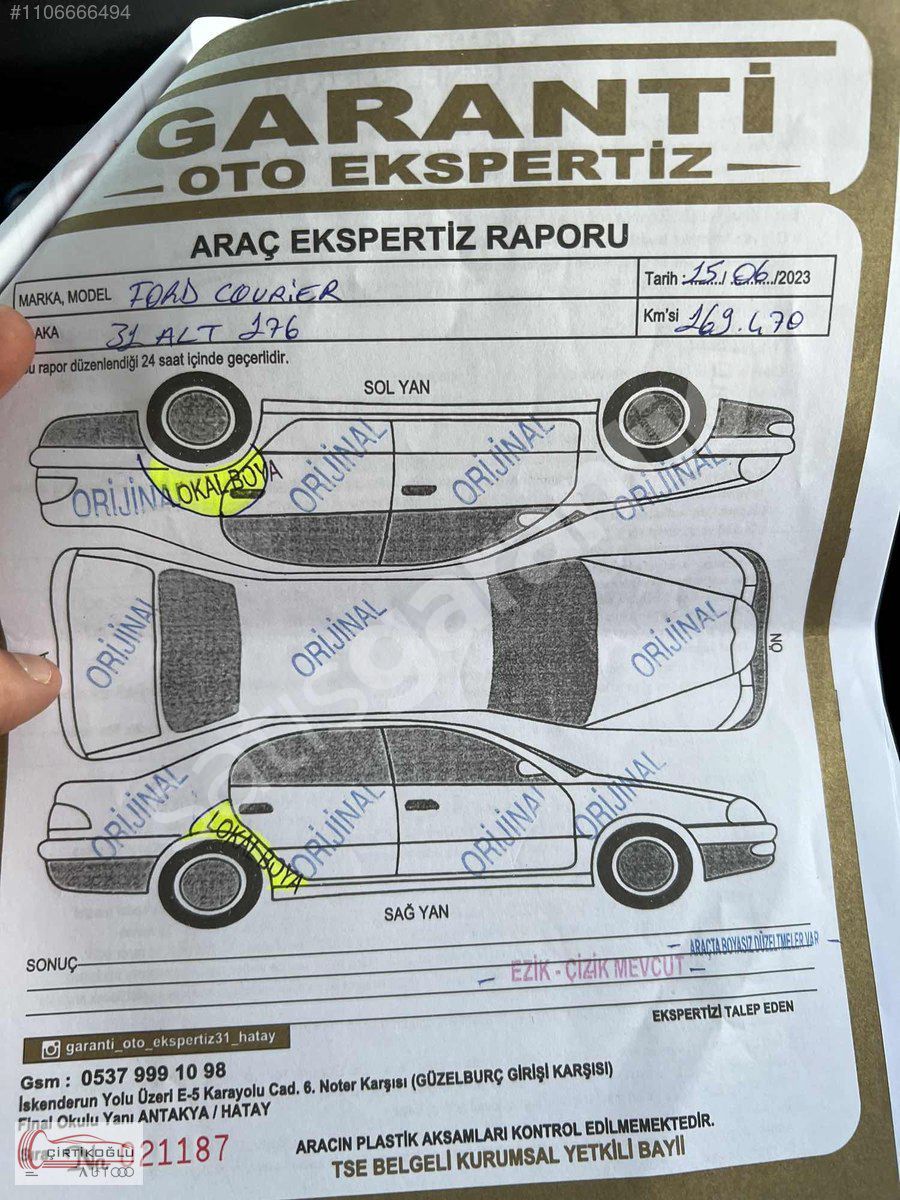 #1106666494
GARANTİ
OTO EKSPERTİZ
ARAÇ EKSPERTİZ RAPORU
MARKA, MODEL FORD COURİER
Tarih : 15 / 06 /2023
AKA 31 ALT 276
Km'si 169.470
u rapor düzenlendiği 24 saat içinde geçerlidir.
SOL YAN
ORİJİNAL LOKAL BOYA ORİJİNAL ORİJİNAL ORİJİNAL
ORİJİNAL ORİJİNAL ORİJİNAL
ÖN
ORİJİNAL LOKAL BOYA ORİJİNAL ORİJİNAL ORİJİNAL
SAĞ YAN
ARAÇTA BOYASIZ DÜZELTMELER VAR
SONUÇ
EZİK - ÇİZİK MEVCUT
EKSPERTİZİ TALEP EDEN
garanti_oto_ekspertiz31_hatay
Gsm : 0537 999 10 98
İskenderun Yolu Üzeri E-5 Karayolu Cad. 6. Noter Karşısı (GÜZELBURÇ GİRİŞİ KARŞISI)
Final Okulu Yanı ANTAKYA / HATAY
21187
ÇIRTIKOĞLU
AUTO
ARACIN PLASTİK AKSAMLARI KONTROL EDİLMEMEKTEDİR.
TSE BELGELİ KURUMSAL YETKİLİ BAYİİ